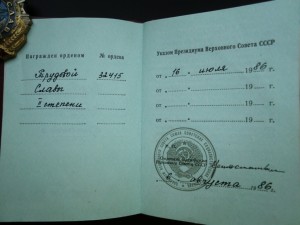 Награжден орденом
№ ордена
Трудовой
32415
Славы
II степени
Указом Президиума Верховного Совета СССР
от „16" июля 1986 г.
от „ " 19 г.
от „ " 19 г.
от „ " 19 г.
августа 1986 г.